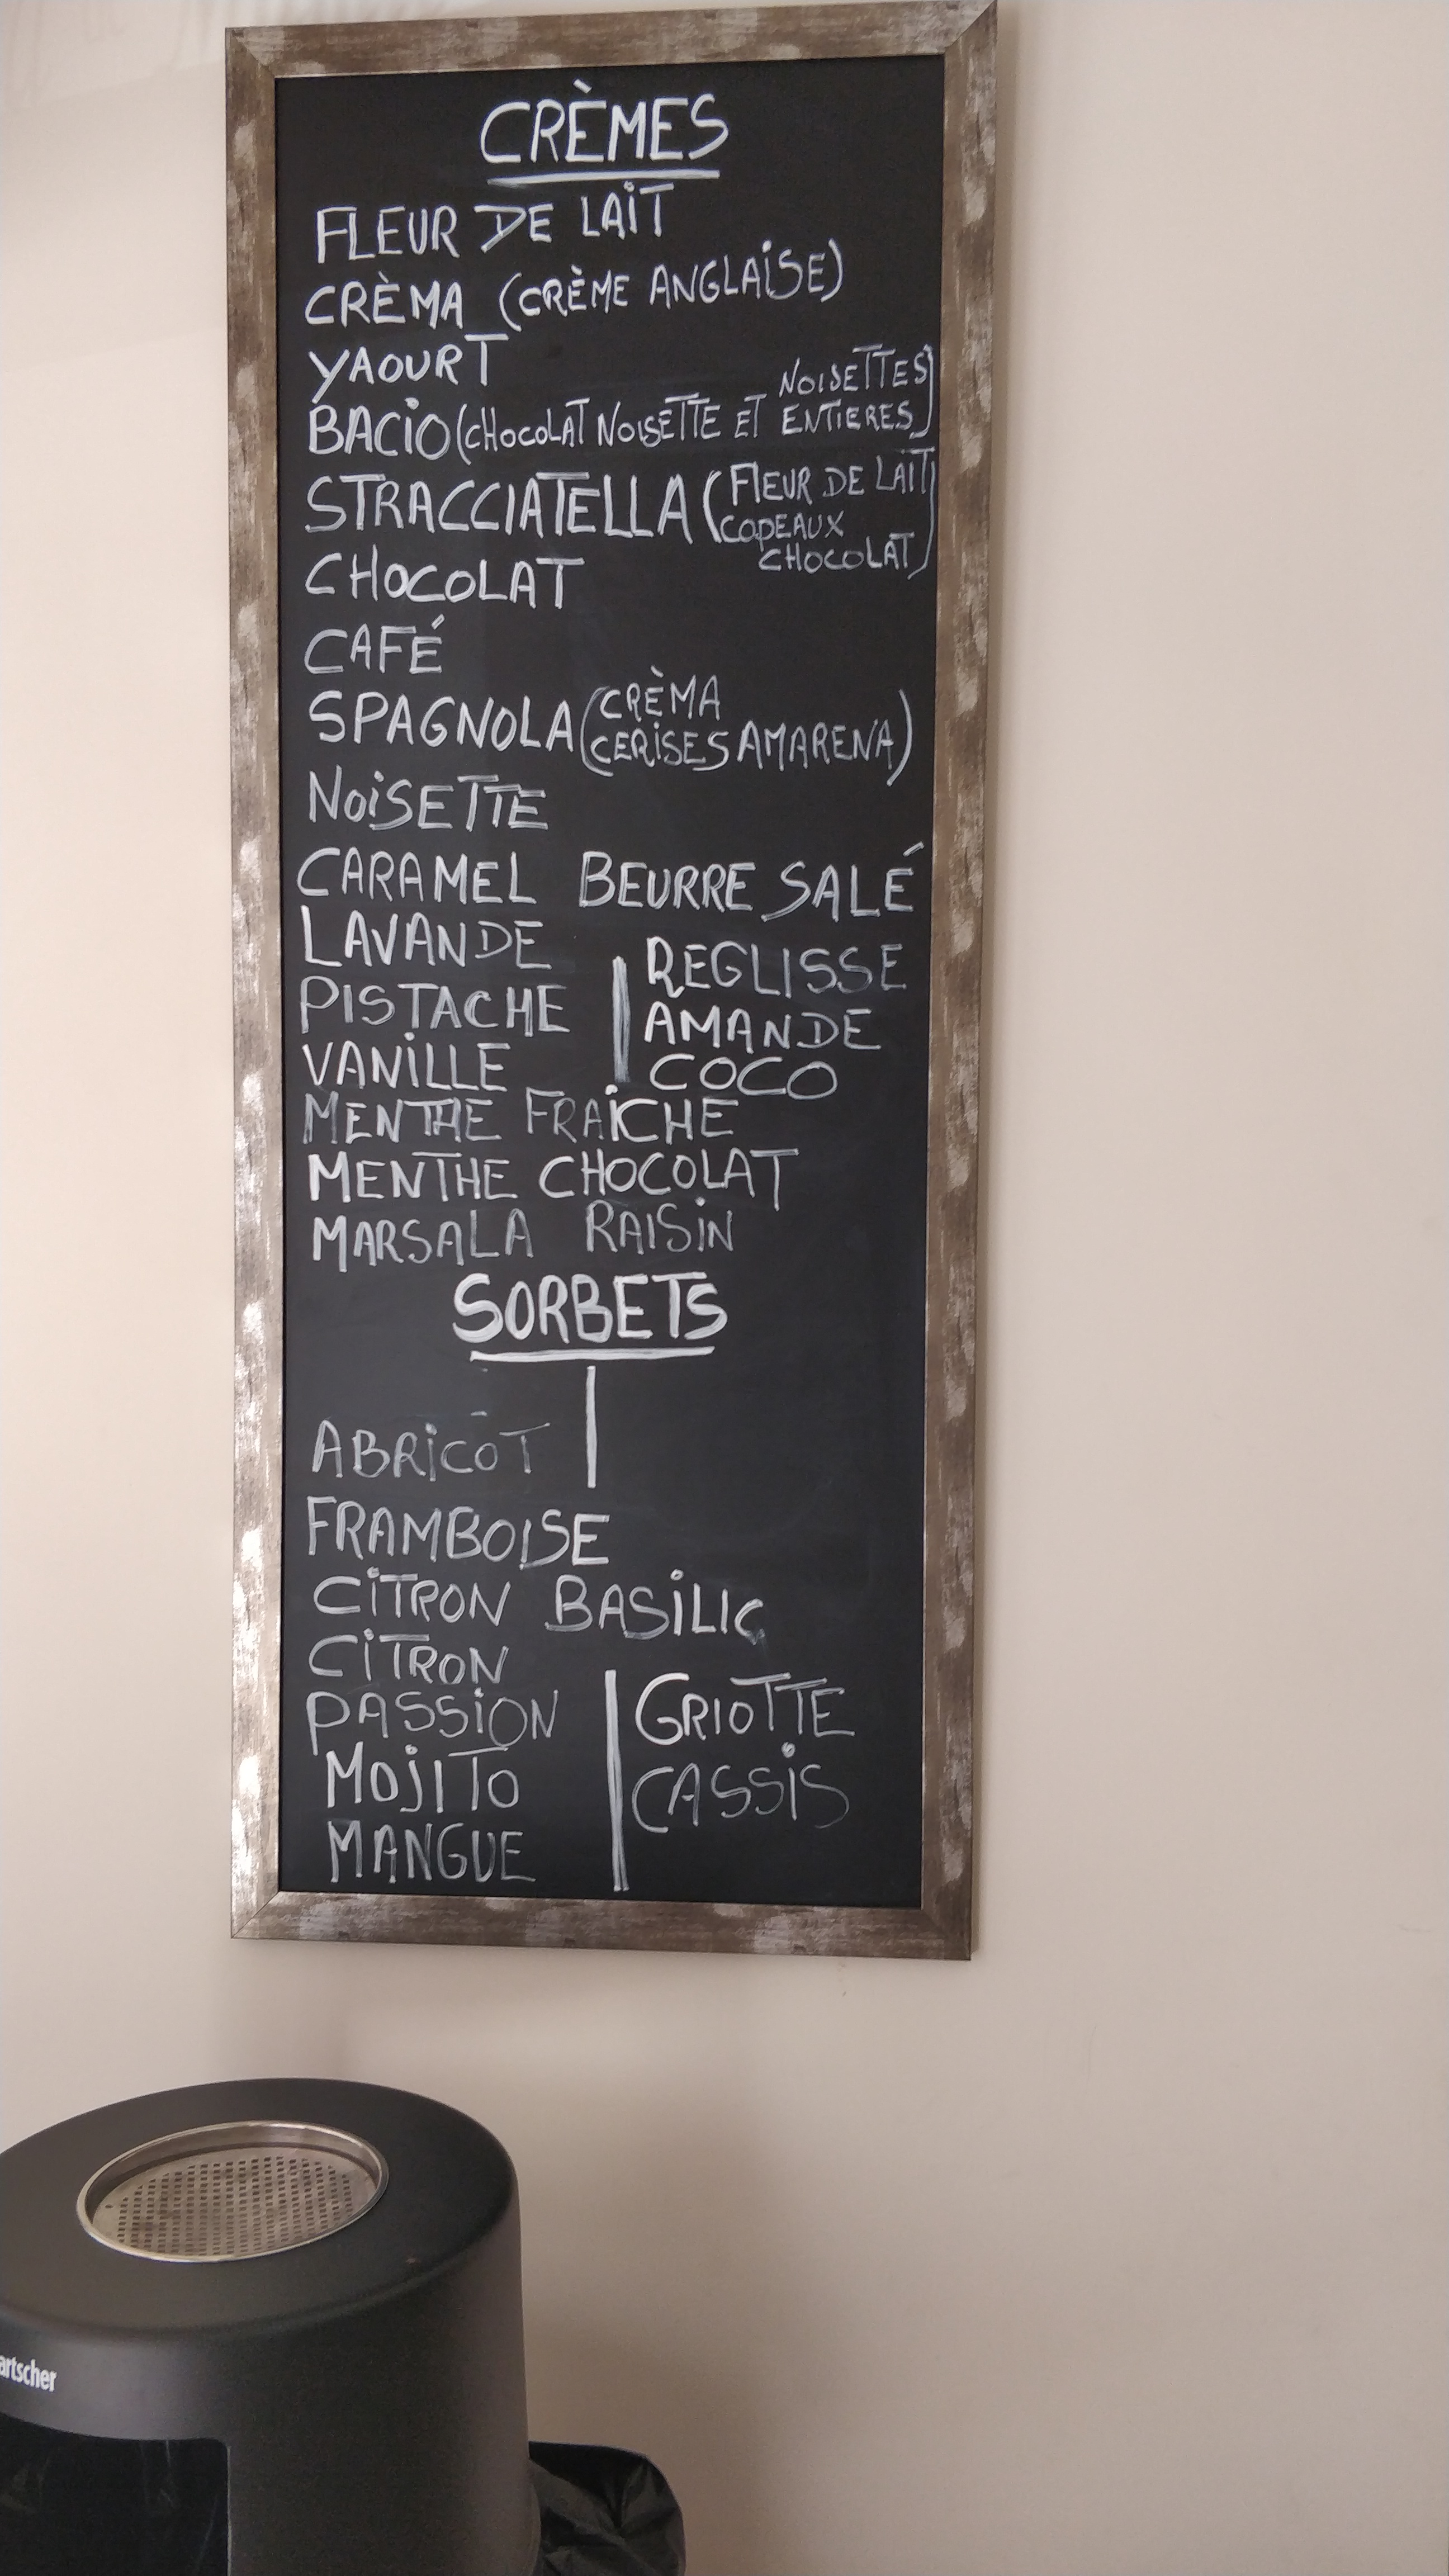 CRÈMES
FLEUR DE LAiT
CRÈMA (CRÈME ANGLAiSE)
YAOURT
BACiO (CHOCOLAT NOISETTE ET NOISETTES
ENTIERES)
STRACCIATELLA (FLEUR DE LAIT
COPEAUX
CHOCOLAT)
CHOCOLAT
CAFÉ
SPAGNOLA (CRÈMA
CERiSES AMARENA)
NOiSETTE
CARAMEL BEURRE SALÉ
LAVANDE
PISTACHE
VANiLLE
REGLISSE
AMANDE
COCO
MENTHE FRAICHE
MENTHE CHOCOLAT
MARSALA RAISiN
SORBETS
ABRiCOT
FRAMBOISE
CiTRON BASiLIC
CiTRON
PASSiON
MOjITO
MANGUE
GRIOTTE
CASSiS
artscher